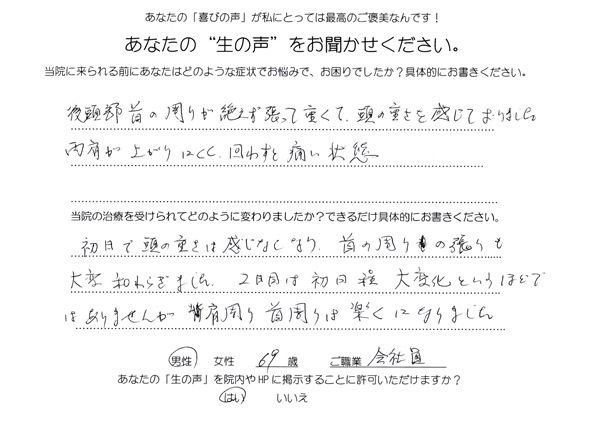 あなたの「喜びの声」が私にとっては最高のご褒美なんです！
あなたの“生の声”をお聞かせください。
当院に来られる前にあなたはどのような症状でお悩みで、お困りでしたか？具体的にお書きください。
後頭部首の周りが絶えず張って重くて、頭の重さを感じておりました
両肩が上がりにくく、回わすと痛い状態
当院の治療を受けられてどのように変わりましたか？できるだけ具体的にお書きください。
初日で頭の重さは感じなくなり、首の周りの張りも
大変和わらぎました。2日目は初日程 大変化というほどで
はありませんが 肩周り 首周りは楽くになりました
男性 女性 69 歳 ご職業 会社員
あなたの「生の声」を院内やHPに掲示することに許可いただけますか？
はい いいえ